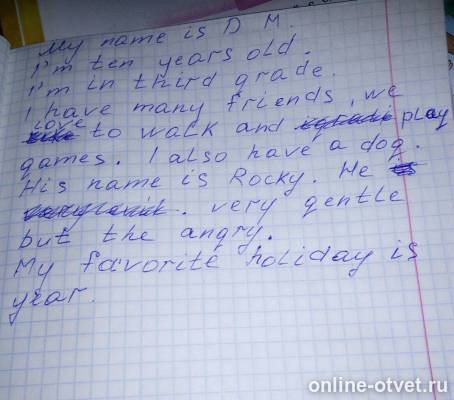 My name is D M.
I'm ten years old.
I'm in third grade.
I have many friends, we
love to walk and play
games. I also have a dog.
His name is Rocky. He
very gentle
but the angry.
My favorite holiday is
year.
online-otvet.ru